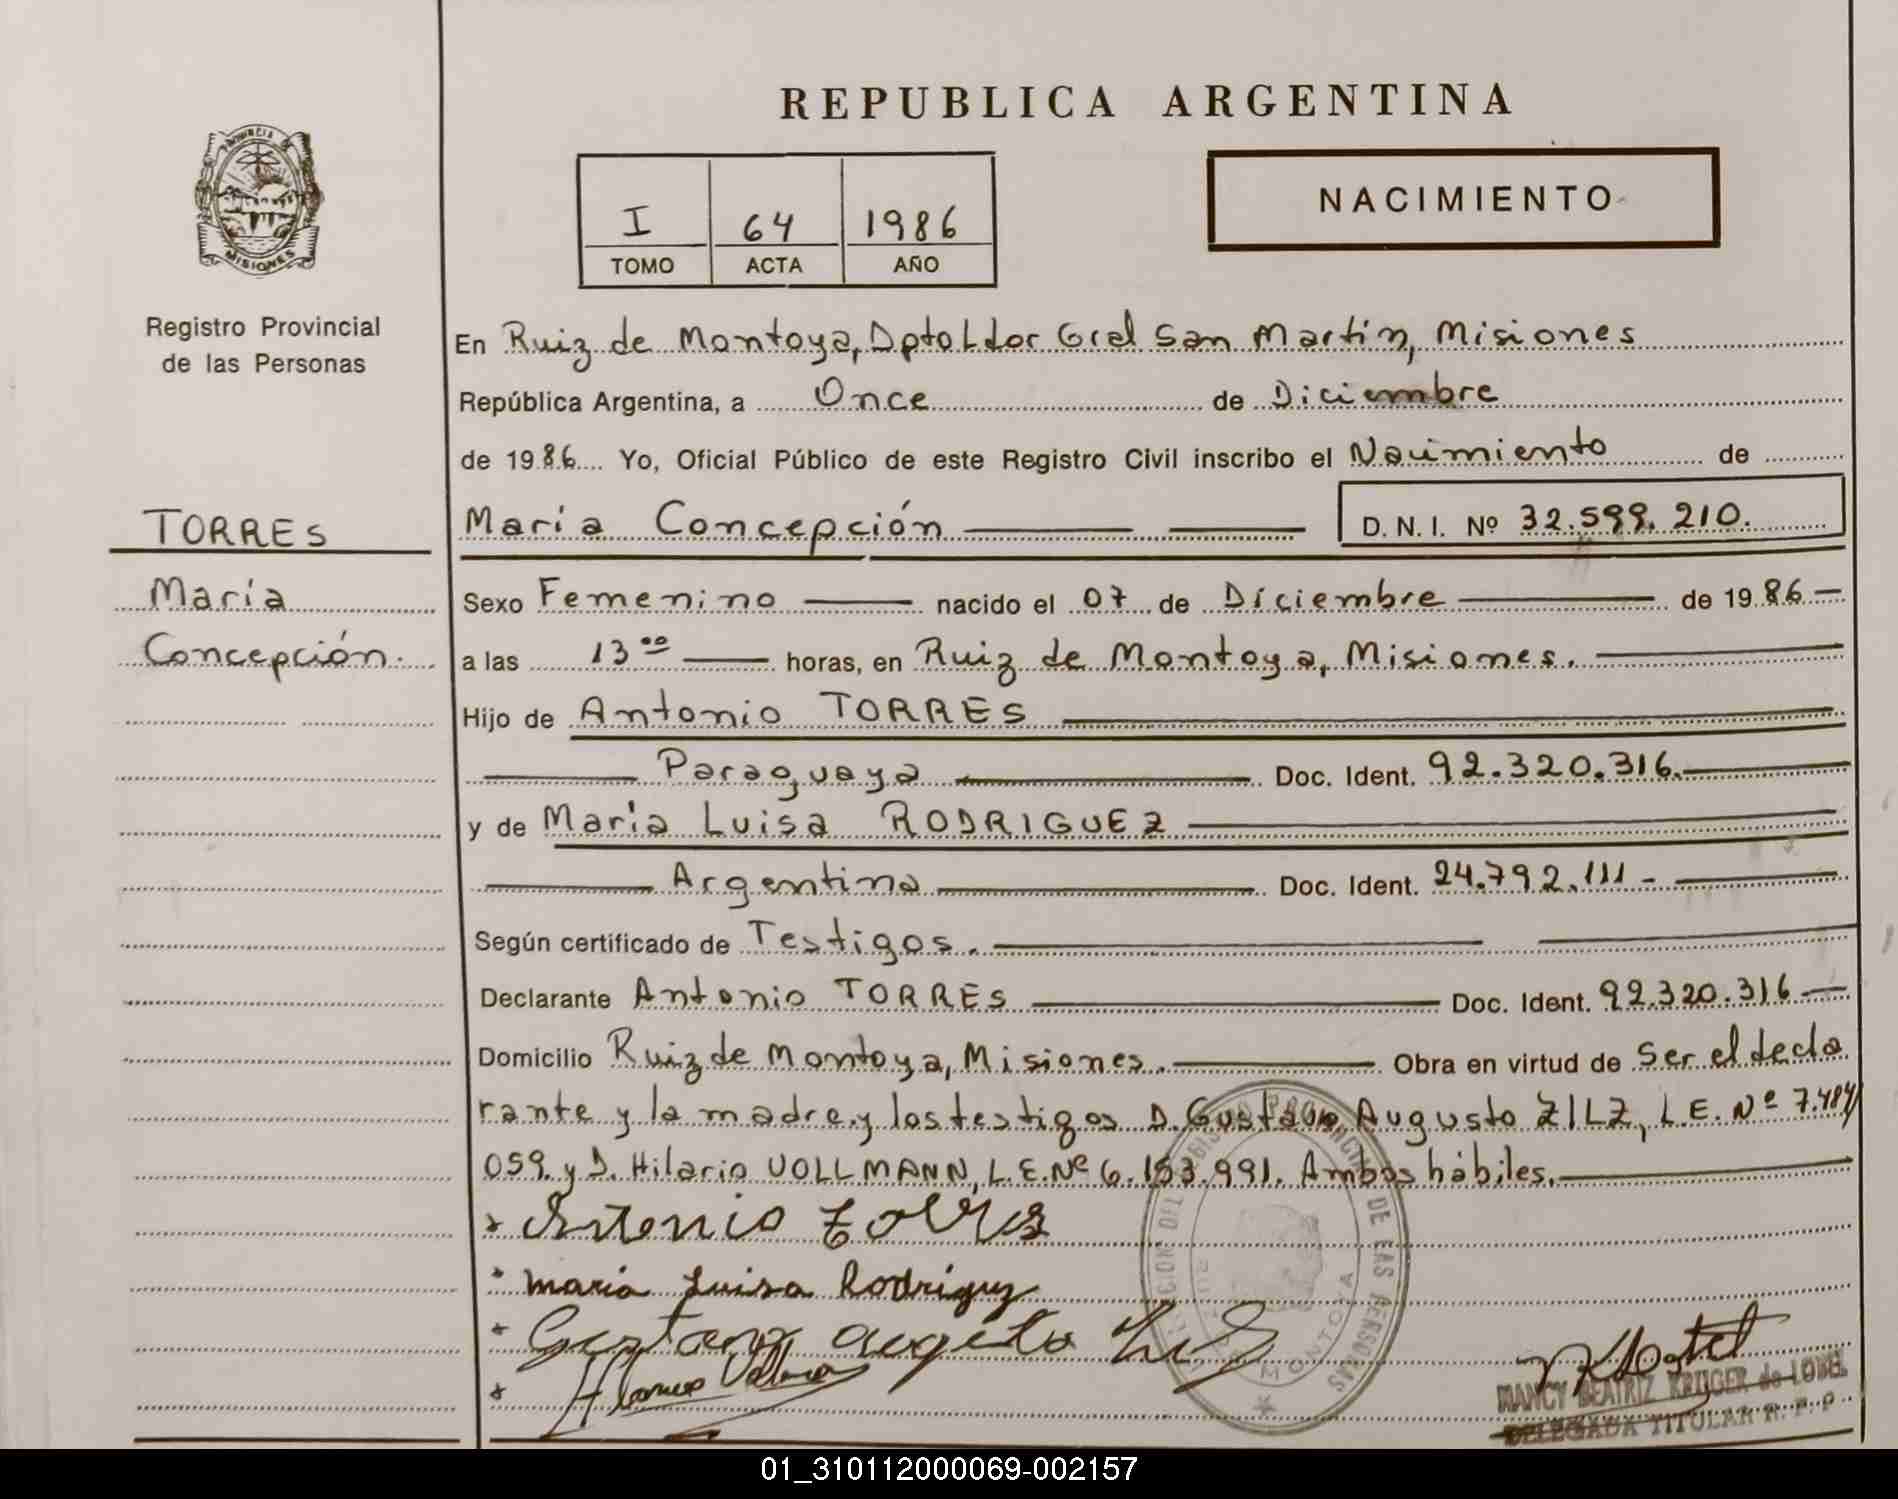 REPUBLICA ARGENTINA
PROVINCIA DE
MISIONES
Registro Provincial
de las Personas
I 64 1986
TOMO ACTA AÑO
NACIMIENTO
En Ruiz de Montoya, Dpto Ldor Gral San Martín, Misiones
República Argentina, a Once de Diciembre
de 1986 Yo, Oficial Público de este Registro Civil inscribo el Nacimiento de
TORRES
María
Concepción.
María Concepción D.N.I. Nº 32.599.210.
Sexo Femenino nacido el 07 de Diciembre de 1986
a las 13 00 horas, en Ruiz de Montoya, Misiones.
Hijo de Antonio TORRES
Paraguaya Doc. Ident. 92.320.316.
y de María Luisa RODRIGUEZ
Argentina Doc. Ident. 24.792.111
Según certificado de Testigos.
Declarante Antonio TORRES Doc. Ident. 92.320.316
Domicilio Ruiz de Montoya, Misiones. Obra en virtud de Ser el decla
rante y la madre y los testigos D. Gustavo Augusto ZILZ, L.E. Nº 7.484
059. y D. Hilario VOLLMANN, L.E. Nº 6.153.991. Ambos hábiles.
Antonio Torres
maria Luisa Rodriguez
Gustavo augusto Zilz
NANCY BEATRIZ KRUGER de
DELEGADA TITULAR R. P. P.
DEL REGISTRO PROVINCIAL DE LAS PERSONAS
MONTOYA
01_310112000069-002157